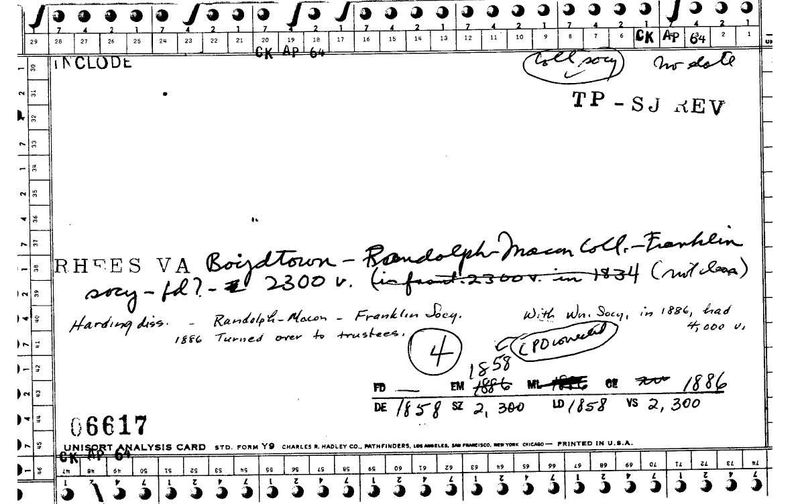 CK AP 64
29 28 27 26 25 24 23 22 21 20 19 18 17 16 15 14 13 12 11 10 9 8 7 6 CK AP 64 2 1
INCLUDE
Coll socy no date
TP - SJ REV
RHEES VA Boydtown - Randolph-Macon Coll. - Franklin
socy - fd? - 2300 v. (is from 2300 v. in 1834 (not clear)
Harding diss. - Randolph-Macon - Franklin Socy. With Wn. Socy, in 1886, had
1886 Turned over to trustees. 4,000 v.
4
1858
FD — EM 1886 ML 1886 CE 1886
DE 1858 SZ 2,300 LD 1858 VS 2,300
06617
UNISORT ANALYSIS CARD STD. FORM Y9 CHARLES R. HADLEY CO., PATHFINDERS, LOS ANGELES, SAN FRANCISCO, NEW YORK CHICAGO — PRINTED IN U.S.A.
CK AP 64